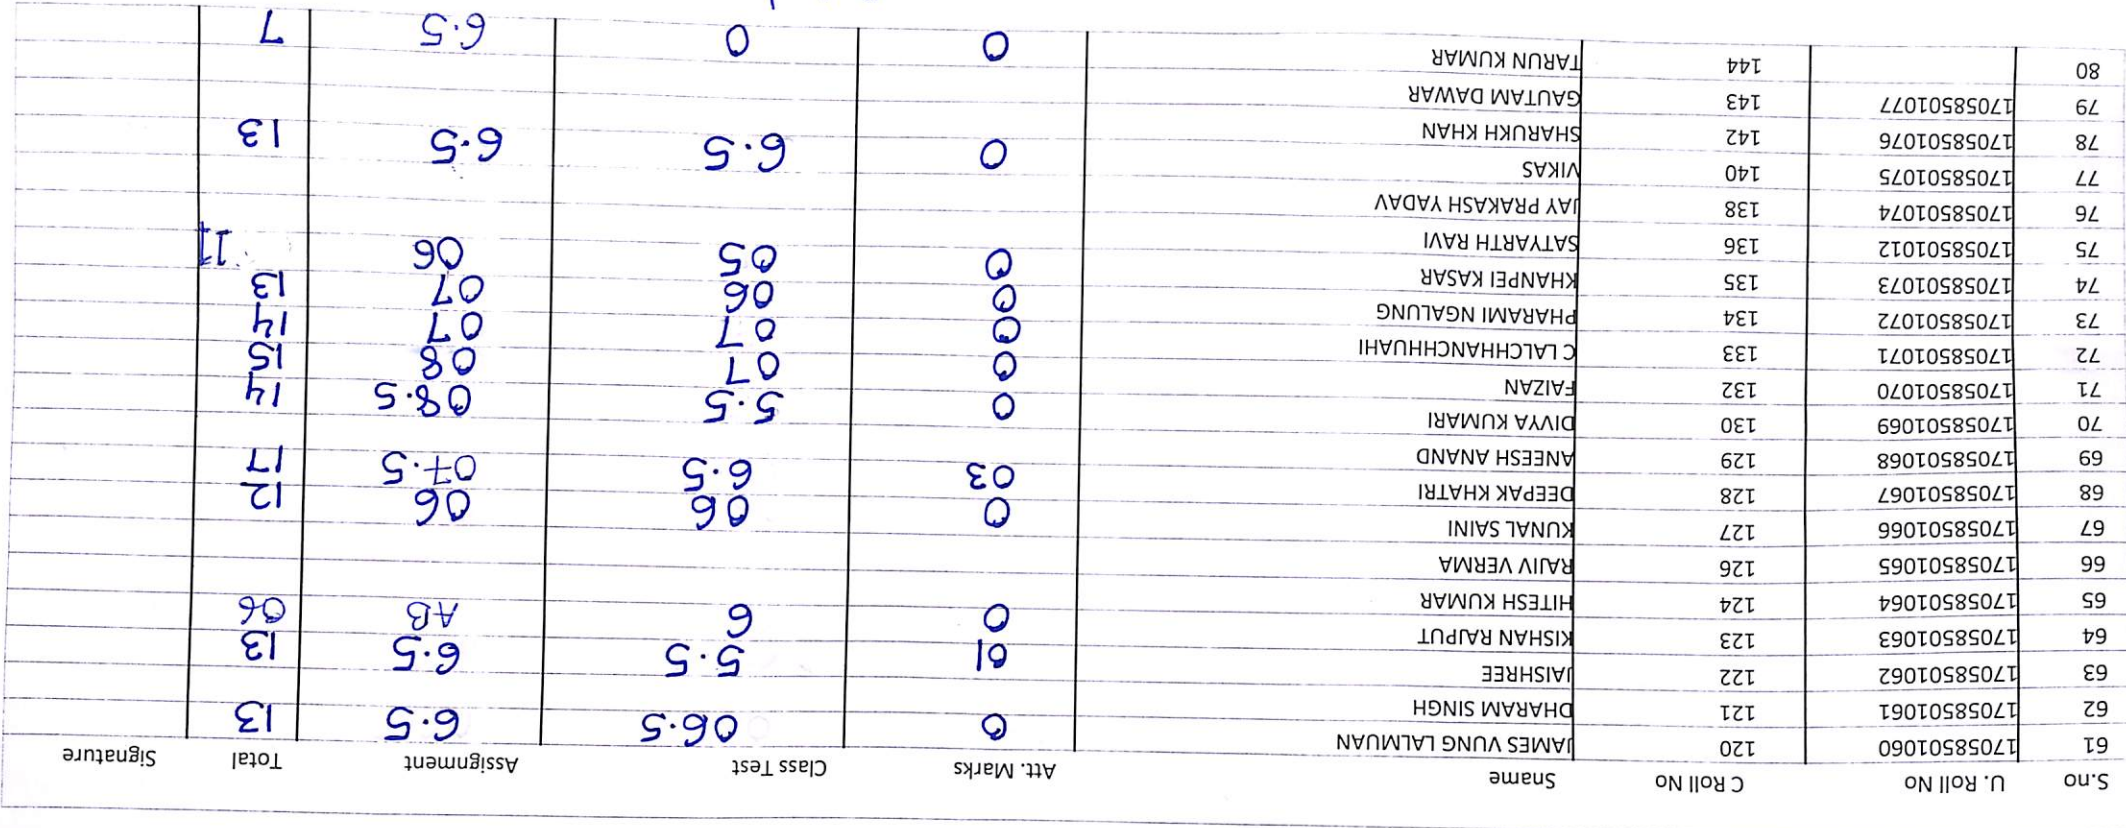 S.no U. Roll No C Roll No Sname Att. Marks Class Test Assignment Total Signature
61 17058501060 120 JAMES VUNG LALMUAN 0 06.5 6.5 13
62 17058501061 121 DHARAM SINGH
63 17058501062 122 JAISHREE 01 5.5 6.5 13
64 17058501063 123 KISHAN RAJPUT 0 6 AB 06
65 17058501064 124 HITESH KUMAR
66 17058501065 126 RAJIV VERMA
67 17058501066 127 KUNAL SAINI 0 06 06 12
68 17058501067 128 DEEPAK KHATRI 03 6.5 07.5 17
69 17058501068 129 ANEESH ANAND
70 17058501069 130 DIVYA KUMARI 0 5.5 08.5 14
71 17058501070 132 FAIZAN 0 07 08 15
72 17058501071 133 C LALCHHANCHHUAHI 0 07 07 14
73 17058501072 134 PHARAMI NGALUNG 0 06 07 13
74 17058501073 135 KHANPEI KASAR 0 05 06 11
75 17058501012 136 SATYARTH RAVI
76 17058501074 138 JAY PRAKASH YADAV
77 17058501075 140 VIKAS 0 6.5 6.5 13
78 17058501076 142 SHARUKH KHAN
79 17058501077 143 GAUTAM DAWAR
80 144 TARUN KUMAR 0 0 6.5 7